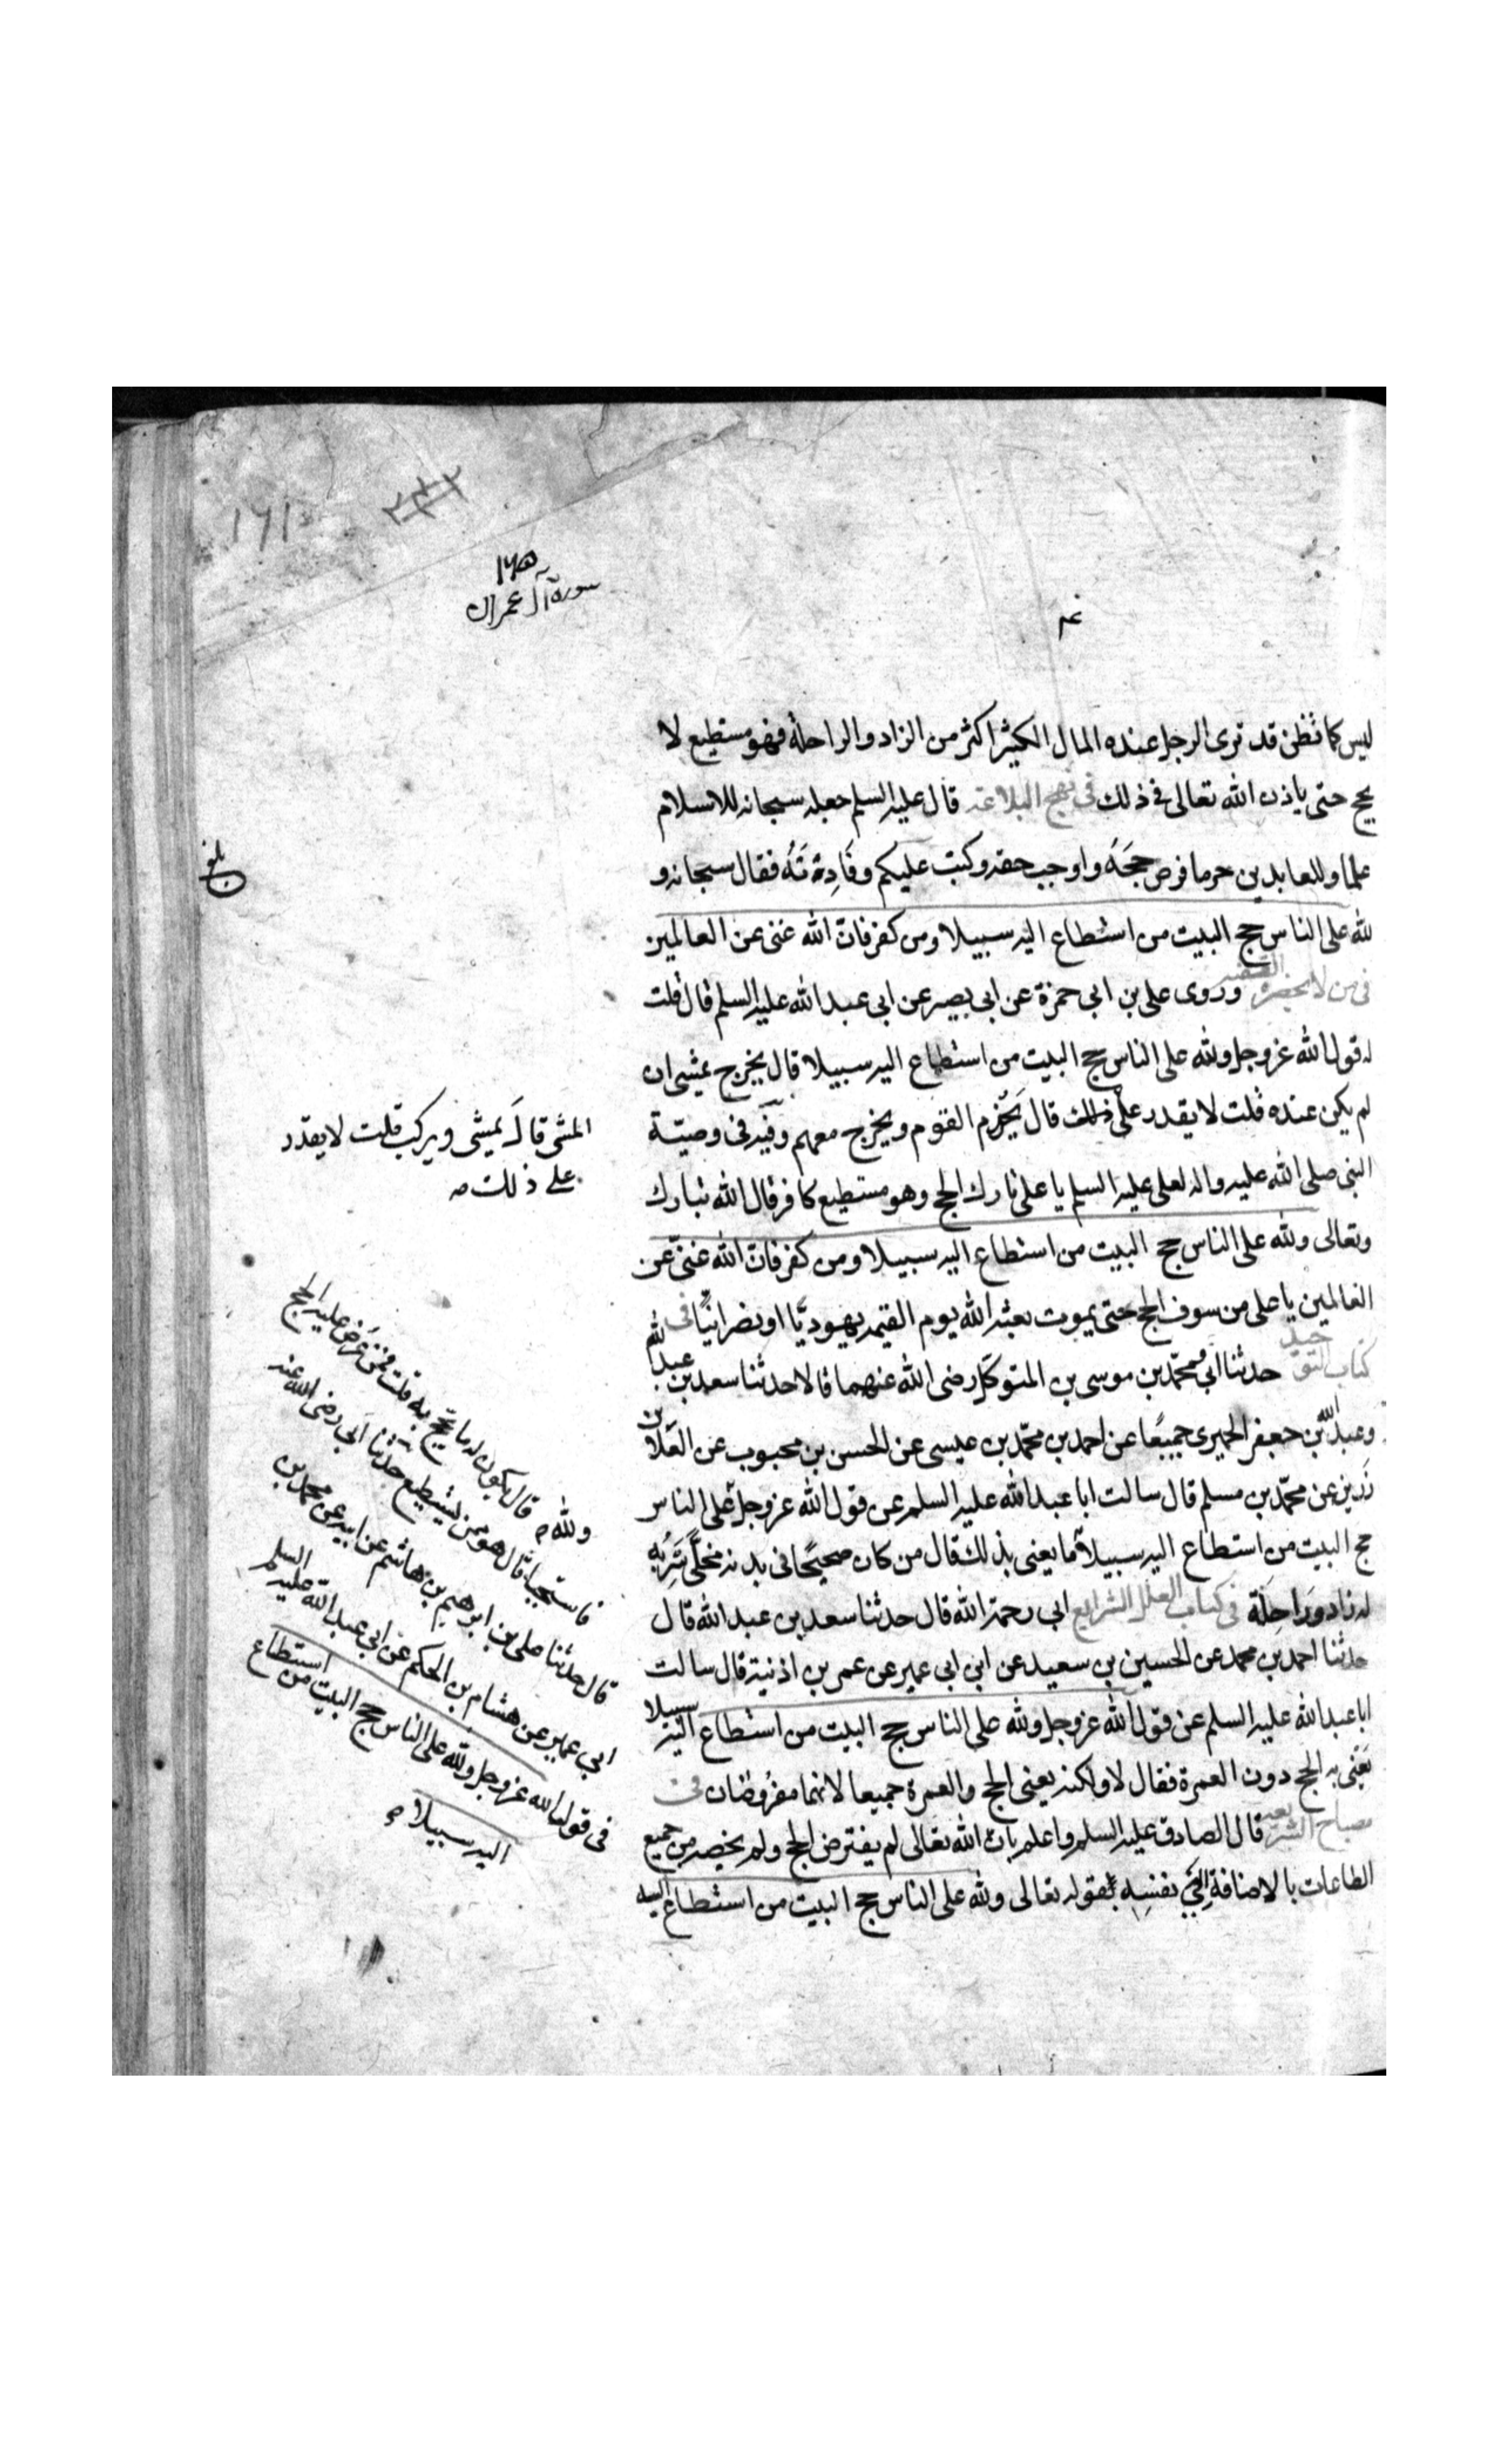 سورة آل عمران
ليس كما تظن قد ترى الرجل عنده المال الكثير اكثر من الزاد والراحلة فهو مستطيع لا
يحج حتى ياذن الله تعالى فى ذلك فى نهج البلاغة قال عليه السلم جعله سبحانه للاسلام
علما وللعابدين حرما فرض حجه واوجب حقه وكتب عليكم وفادته فقال سبحانه و
لله على الناس حج البيت من استطاع اليه سبيلا ومن كفر فان الله غنى عن العالمين
فى من لا يحضره الفقيه وروى على بن ابى حمزة عن ابى بصير عن ابى عبد الله عليه السلم قال قلت
له قول الله عز وجل ولله على الناس حج البيت من استطاع اليه سبيلا قال يخرج يمشى ان
لم يكن عنده قلت لا يقدر على ذلك قال يخدم القوم ويخرج معهم وفيه فى وصية
النبى صلى الله عليه واله لعلى عليه السلم يا على تارك الحج وهو مستطيع كافر قال الله تبارك
وتعالى ولله على الناس حج البيت من استطاع اليه سبيلا ومن كفر فان الله غنى عن
العالمين يا على من سوف الحج حتى يموت بعثه الله يوم القيمة يهوديا او نصرانيا فى
كتاب التوحيد حدثنا ابى ومحمد بن موسى بن المتوكل رضى الله عنهما قالا حدثنا سعد بن عبد الله
وعبد الله بن جعفر الحميرى جميعا عن احمد بن محمد بن عيسى عن الحسن بن محبوب عن العلا بن
رزين عن محمد بن مسلم قال سالت ابا عبد الله عليه السلم عن قول الله عز وجل على الناس
حج البيت من استطاع اليه سبيلا ما يعنى بذلك قال من كان صحيحا فى بدنه مخلى سربه
له زاد وراحلة فى كتاب العلل الشرايع ابى رحمة الله قال حدثنا سعد بن عبد الله قال
حدثنا احمد بن محمد عن الحسين بن سعيد عن ابن ابى عمير عن عمر بن اذنية قال سالت
ابا عبد الله عليه السلم عن قول الله عز وجل ولله على الناس حج البيت من استطاع اليه سبيلا
يعنى به الحج دون العمرة فقال لا ولكنه يعنى الحج والعمرة جميعا لانهما مفروضان فى
مصباح الشريعة قال الصادق عليه السلم واعلم بان الله تعالى لم يفترض الحج ولم يخصه من جميع
الطاعات بالاضافة الى نفسه بقوله تعالى ولله على الناس حج البيت من استطاع اليه
بلغ
المشى قال يمشى ويركب قلت لا يقدر
على ذلك
ولله
قال يكون له ما يحج به قلت فمن عرض عليه الحج
فاستحيا قال هو ممن يستطيع حدثنا ابى رضى الله عنه
قال حدثنا على بن ابرهيم بن هاشم عن ابيه عن محمد بن
ابى عمير عن هشام بن الحكم عن ابى عبد الله عليه السلم
فى قول الله عز وجل ولله على الناس حج البيت من استطاع
اليه سبيلا